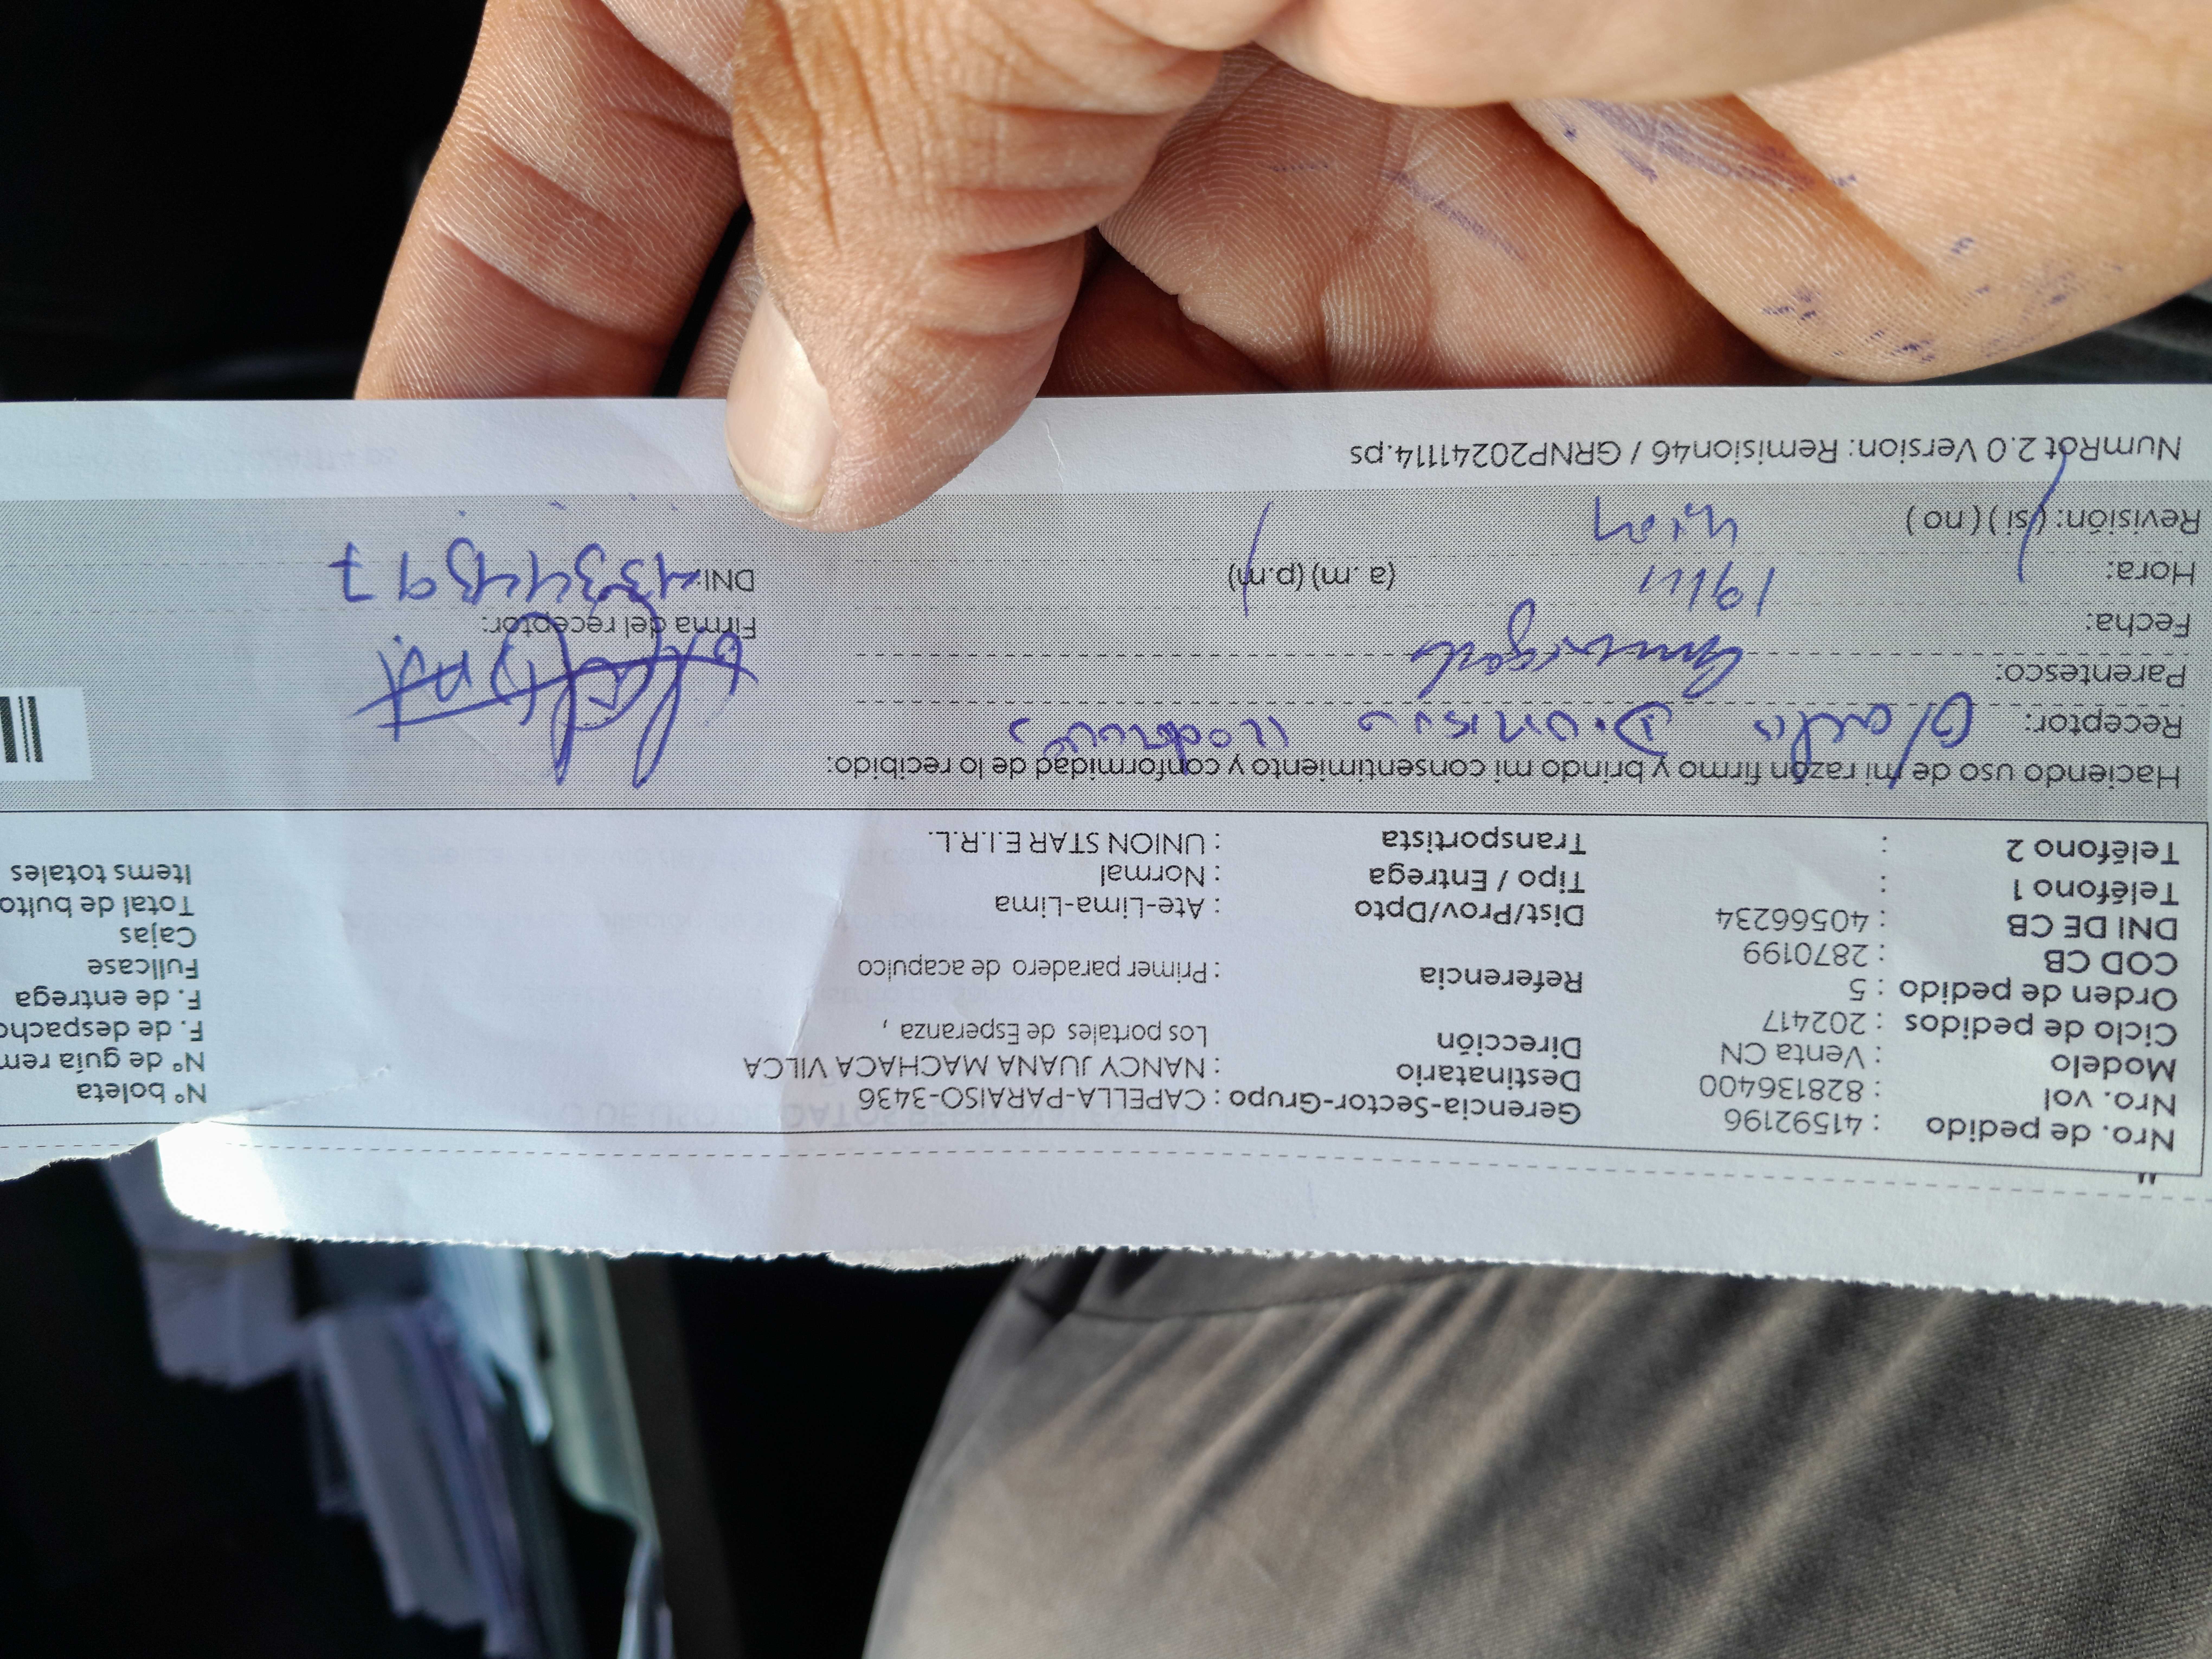 Nro. de pedido : 41592196 Gerencia-Sector-Grupo : CAPELLA-PARAISO-3436 N° boleta
Nro. vol : 828136400 Destinatario : NANCY JUANA MACHACA VILCA N° de guía rem
Modelo : Venta CN Dirección Los portales de Esperanza , F. de despacho
Ciclo de pedidos : 202417 F. de entrega
Orden de pedido : 5 Referencia : Primer paradero de acapulco Fullcase
COD CB : 2870199 Cajas
DNI DE CB : 40566234 Dist/Prov/Dpto : Ate-Lima-Lima Total de bulto
Teléfono 1 : Tipo / Entrega : Normal Items totales
Teléfono 2 : Transportista : UNION STAR E.I.R.L.
Haciendo uso de mi razón firmo y brindo mi consentimiento y conformidad de lo recibido:
Receptor: Dionisio
Parentesco:
Fecha: 19/11 Firma del receptor:
Hora: (a. m) (p.m) DNI: 43344397
Revisión: (si) (no)
NumRot 2.0 Version: Remision46 / GRNP20241114.ps